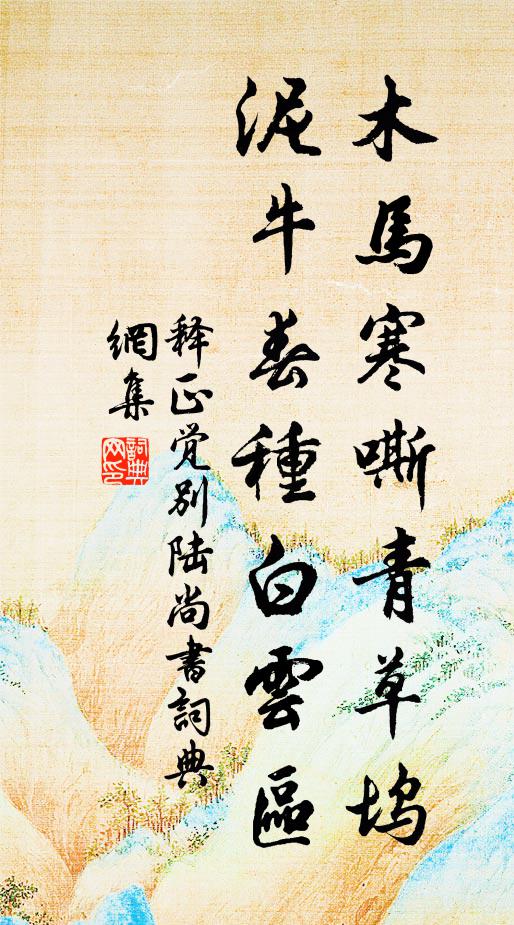 木馬寒嘶青草坞
泥牛春種白雲區
释正觉别陆尚書詞典
網集
詞典
网印